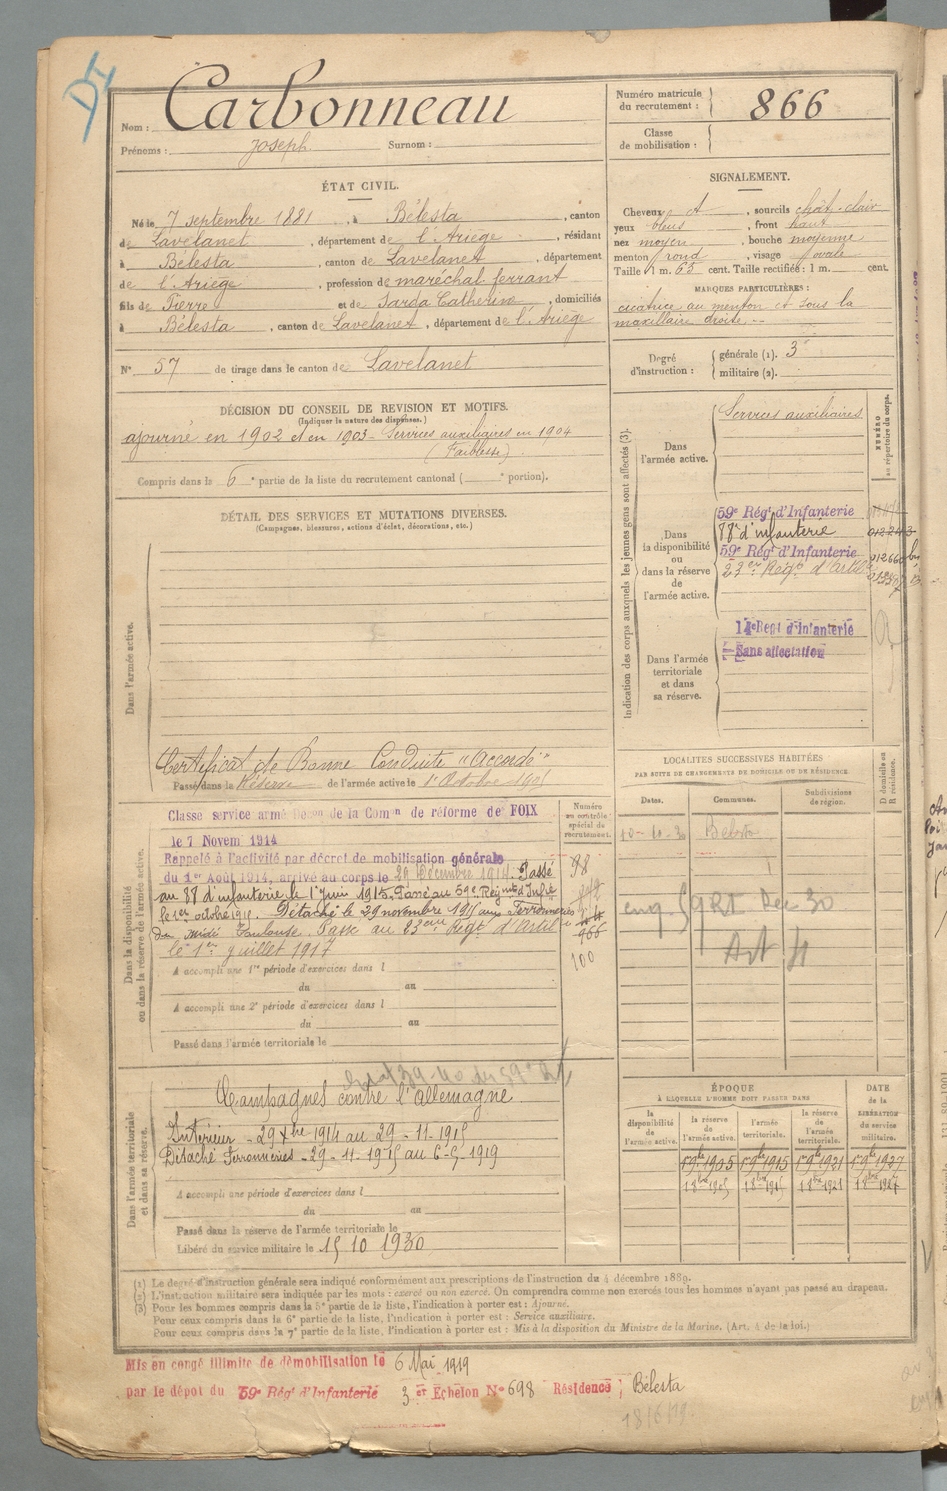 DI
Nom : Carbonneau
Prénoms : Joseph Surnom :
Numéro matricule du recrutement : 866
Classe de mobilisation :
ÉTAT CIVIL.
Né le 7 septembre 1881, à Bélesta, canton
de Lavelanet, département de l'Ariège, résidant
à Bélesta, canton de Lavelanet, département
de l'Ariège, profession de maréchal ferrant
fils de Pierre et de Sarda Catherine, domiciliés
à Bélesta, canton de Lavelanet, département de l'Ariège
N° 57 de tirage dans le canton de Lavelanet
SIGNALEMENT.
Cheveux ct, sourcils chât-clair
yeux bleus, front haut
nez moyen, bouche moyenne
menton rond, visage ovale
Taille 1 m. 63 cent. Taille rectifiée : 1 m. cent.
MARQUES PARTICULIÈRES :
cicatrice au menton et sous la
maxillaire droite.
Degré d'instruction : générale (1). 3
militaire (2).
DÉCISION DU CONSEIL DE REVISION ET MOTIFS.
(Indiquer la nature des dispenses.)
ajourné en 1902 et en 1903 - Services auxiliaires en 1904
(Faiblesse)
Compris dans la 6e partie de la liste du recrutement cantonal ( e portion).
DÉTAIL DES SERVICES ET MUTATIONS DIVERSES.
(Campagnes, blessures, actions d'éclat, décorations, etc.)
Dans l'armée active.
Certificat de Bonne Conduite "Accordé"
Passé dans la Réserve de l'armée active le 1er Octobre 1905
Indication des corps auxquels les jeunes gens sont affectés (3).
NUMÉRO au répertoire du corps.
Dans l'armée active.
Services auxiliaires
Dans la disponibilité ou dans la réserve de l'armée active.
59e Régt d'Infanterie
88e d'infanterie
59e Régt d'Infanterie
23e Régt d'Artie
Dans l'armée territoriale et dans sa réserve.
14e Regt d'Infanterie
Sans affectation
Dans la disponibilité ou dans la réserve de l'armée active.
Numéro au contrôle spécial de recrutement.
Classé service armé de la Comon de réforme de FOIX
le 7 Novem 1914
Rappelé à l'activité par décret de mobilisation générale
du 1er Août 1914, arrivé au corps le 29 Décembre 1914. Passé
au 88 d'infanterie le 1er Juin 1915. Passé au 59e Régmt d'Infrie
le 1er octobre 1915. Détaché le 29 novembre 1915 aux Ferronneries
du midi Toulouse. Passé au 23eme Régt d'Artil
le 1er Juillet 1917
98
100
A accompli une 1re période d'exercices dans l
du au
A accompli une 2e période d'exercices dans l
du au
Passé dans l'armée territoriale le
LOCALITÉS SUCCESSIVES HABITÉES
PAR SUITE DE CHANGEMENTS DE DOMICILE OU DE RÉSIDENCE.
Dates. Communes. Subdivisions de région. D domicile ou R résidence.
10-10-30 Bélesta
Dans l'armée territoriale et dans sa réserve.
Campagnes contre l'Allemagne
Intérieur - 29 Xbre 1914 au 29-11-1915
Détaché Ferronneries - 29-11-1915 au 6-5-1919
A accompli une période d'exercices dans l
du au
Passé dans la réserve de l'armée territoriale le
Libéré du service militaire le 15 10 1930
ÉPOQUE
À LAQUELLE L'HOMME DOIT PASSER DANS
la disponibilité de l'armée active.
la réserve de l'armée active.
l'armée territoriale.
la réserve de l'armée territoriale.
DATE de la LIBÉRATION du service militaire.
(1) Le degré d'instruction générale sera indiqué conformément aux prescriptions de l'instruction du 4 décembre 1889.
(2) L'instruction militaire sera indiquée par les mots : exercé ou non exercé. On comprendra comme non exercés tous les hommes n'ayant pas passé au drapeau.
(3) Pour les hommes compris dans la 5e partie de la liste, l'indication à porter est : Ajourné.
Pour ceux compris dans la 6e partie de la liste, l'indication à porter est : Service auxiliaire.
Pour ceux compris dans la 7e partie de la liste, l'indication à porter est : Mis à la disposition du Ministre de la Marine. (Art. 4 de la loi.)
Mis en congé illimité de démobilisation le 6 Mai 1919
par le dépôt du 59e Régt d'Infanterie 3e Echelon N° 698 Résidence Bélesta